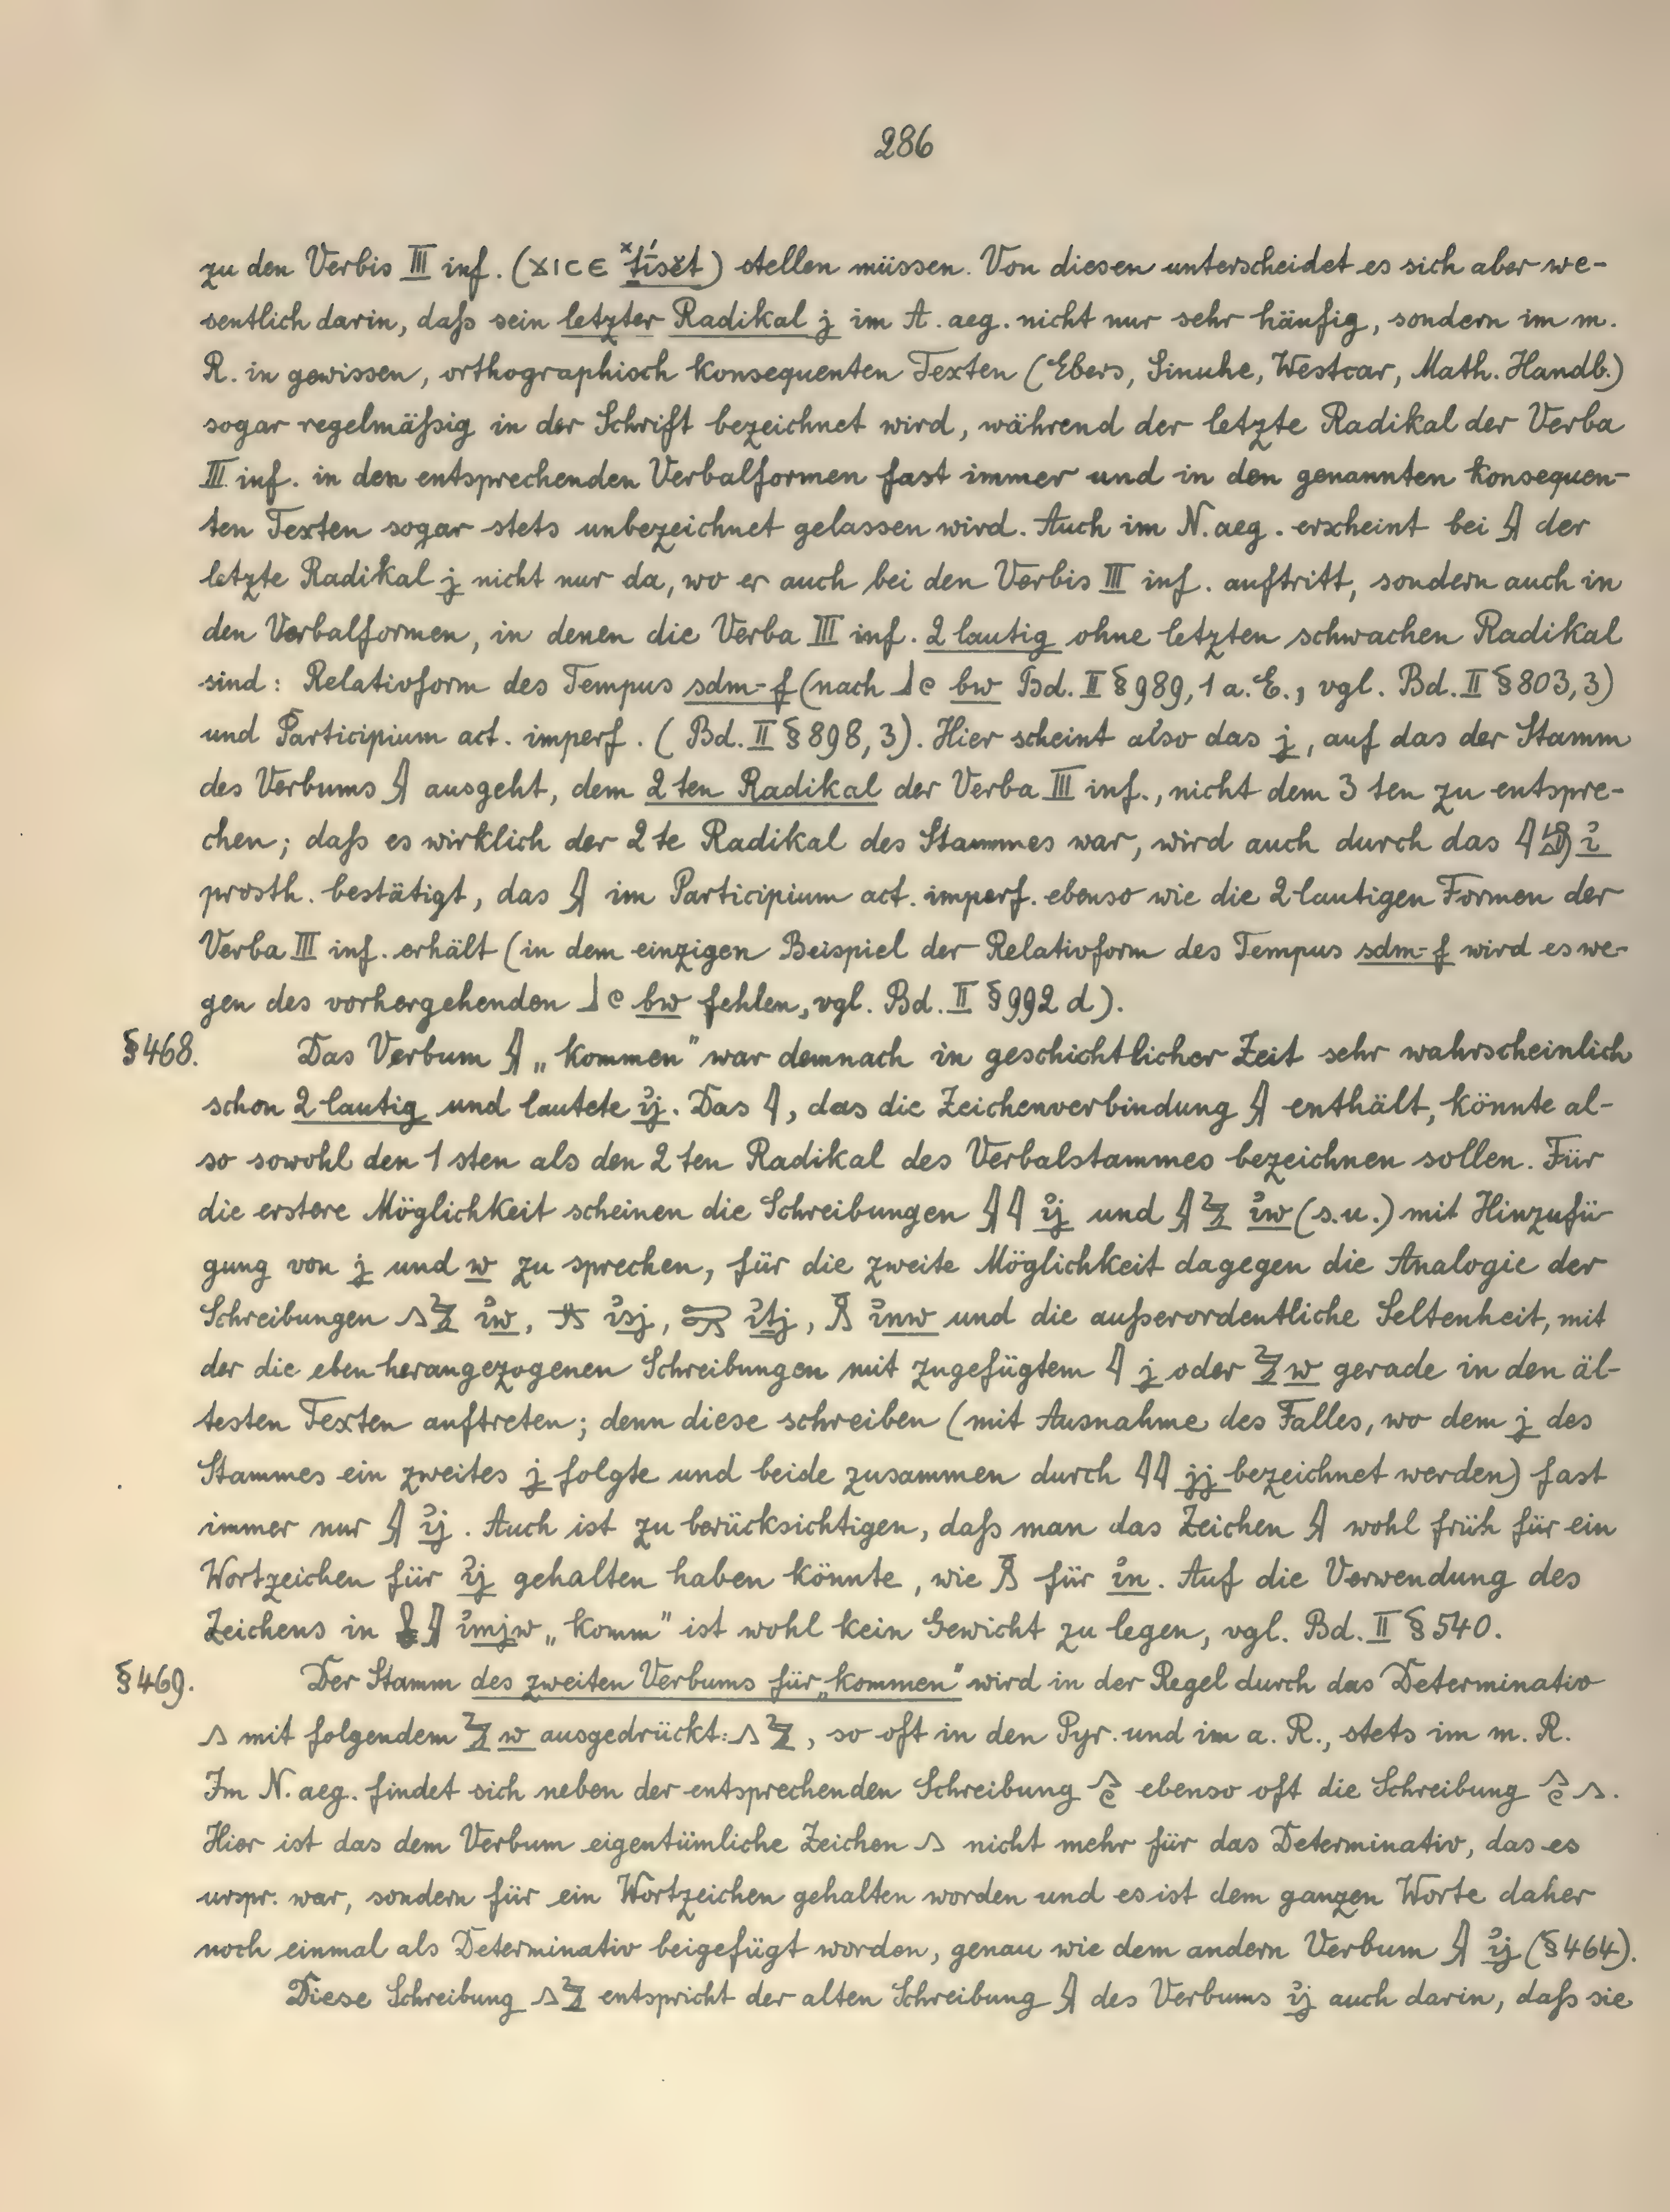 286
zu den Verbis III inf. (ϪΙϹΕ ˣṯísĕt) stellen müssen. Von diesen unterscheidet es sich aber we-
sentlich darin, daß sein letzter Radikal j im A. aeg. nicht nur sehr häufig, sondern im m.
R. in gewissen, orthographisch konsequenten Texten (Ebers, Sinuhe, Westcar, Math. Handb.)
sogar regelmäßig in der Schrift bezeichnet wird, während der letzte Radikal der Verba
III inf. in den entsprechenden Verbalformen fast immer und in den genannten konsequen-
ten Texten sogar stets unbezeichnet gelassen wird. Auch im N. aeg. erscheint bei 𓇍 der
letzte Radikal j nicht nur da, wo er auch bei den Verbis III inf. auftritt, sondern auch in
den Verbalformen, in denen die Verba III inf. 2 lautig ohne letzten schwachen Radikal
sind: Relativform des Tempus sdm-f (nach 𓃀𓏲 bw Bd. II § 989, 1 a. E., vgl. Bd. II § 803, 3)
und Participium act. imperf. (Bd. II § 898, 3). Hier scheint also das j, auf das der Stamm
des Verbums 𓇍 ausgeht, dem 2 ten Radikal der Verba III inf., nicht dem 3 ten zu entspre-
chen; daß es wirklich der 2 te Radikal des Stammes war, wird auch durch das 𓇋𓀁 ỉ
prosth. bestätigt, das 𓇍 im Participium act. imperf. ebenso wie die 2 lautigen Formen der
Verba III inf. erhält (in dem einzigen Beispiel der Relativform des Tempus sdm-f wird es we-
gen des vorhergehenden 𓃀𓏲 bw fehlen, vgl. Bd. II § 992 d).
§ 468. Das Verbum 𓇍 „kommen" war demnach in geschichtlicher Zeit sehr wahrscheinlich
schon 2 lautig und lautete ỉj. Das 𓇋, das die Zeichenverbindung 𓇍 enthält, könnte al-
so sowohl den 1 sten als den 2 ten Radikal des Verbalstammes bezeichnen sollen. Für
die erstere Möglichkeit scheinen die Schreibungen 𓇍𓇋 ỉj und 𓇍𓅱 ỉw (s.u.) mit Hinzufü-
gung von j und w zu sprechen, für die zweite Möglichkeit dagegen die Analogie der
Schreibungen 𓂻𓅱 ỉw, 𓱝 ỉsj, 𓍖 ỉṯj, 𓏎 ỉnw und die außerordentliche Seltenheit, mit
der die eben herangezogenen Schreibungen mit zugefügtem 𓇋 j oder 𓅱 w gerade in den äl-
testen Texten auftreten; denn diese schreiben (mit Ausnahme des Falles, wo dem j des
Stammes ein zweites j folgte und beide zusammen durch 𓇋𓇋 jj bezeichnet werden) fast
immer nur 𓇍 ỉj. Auch ist zu berücksichtigen, daß man das Zeichen 𓇍 wohl früh für ein
Wortzeichen für ỉj gehalten haben könnte, wie 𓏎 für ỉn. Auf die Verwendung des
Zeichens in 𓇍 ỉmjw „komm" ist wohl kein Gewicht zu legen, vgl. Bd. II § 540.
§ 469. Der Stamm des zweiten Verbums für „kommen" wird in der Regel durch das Determinativ
𓂻 mit folgendem 𓅱 w ausgedrückt: 𓂻𓅱, so oft in den Pyr. und im a. R., stets im m. R.
Im N. aeg. findet sich neben der entsprechenden Schreibung 𓂻𓏲 ebenso oft die Schreibung 𓂻𓏲𓂻.
Hier ist das dem Verbum eigentümliche Zeichen 𓂻 nicht mehr für das Determinativ, das es
urspr. war, sondern für ein Wortzeichen gehalten worden und es ist dem ganzen Worte daher
noch einmal als Determinativ beigefügt worden, genau wie dem andern Verbum 𓇍 ỉj (§ 464).
Diese Schreibung 𓂻𓅱 entspricht der alten Schreibung 𓇍 des Verbums ỉj auch darin, daß sie